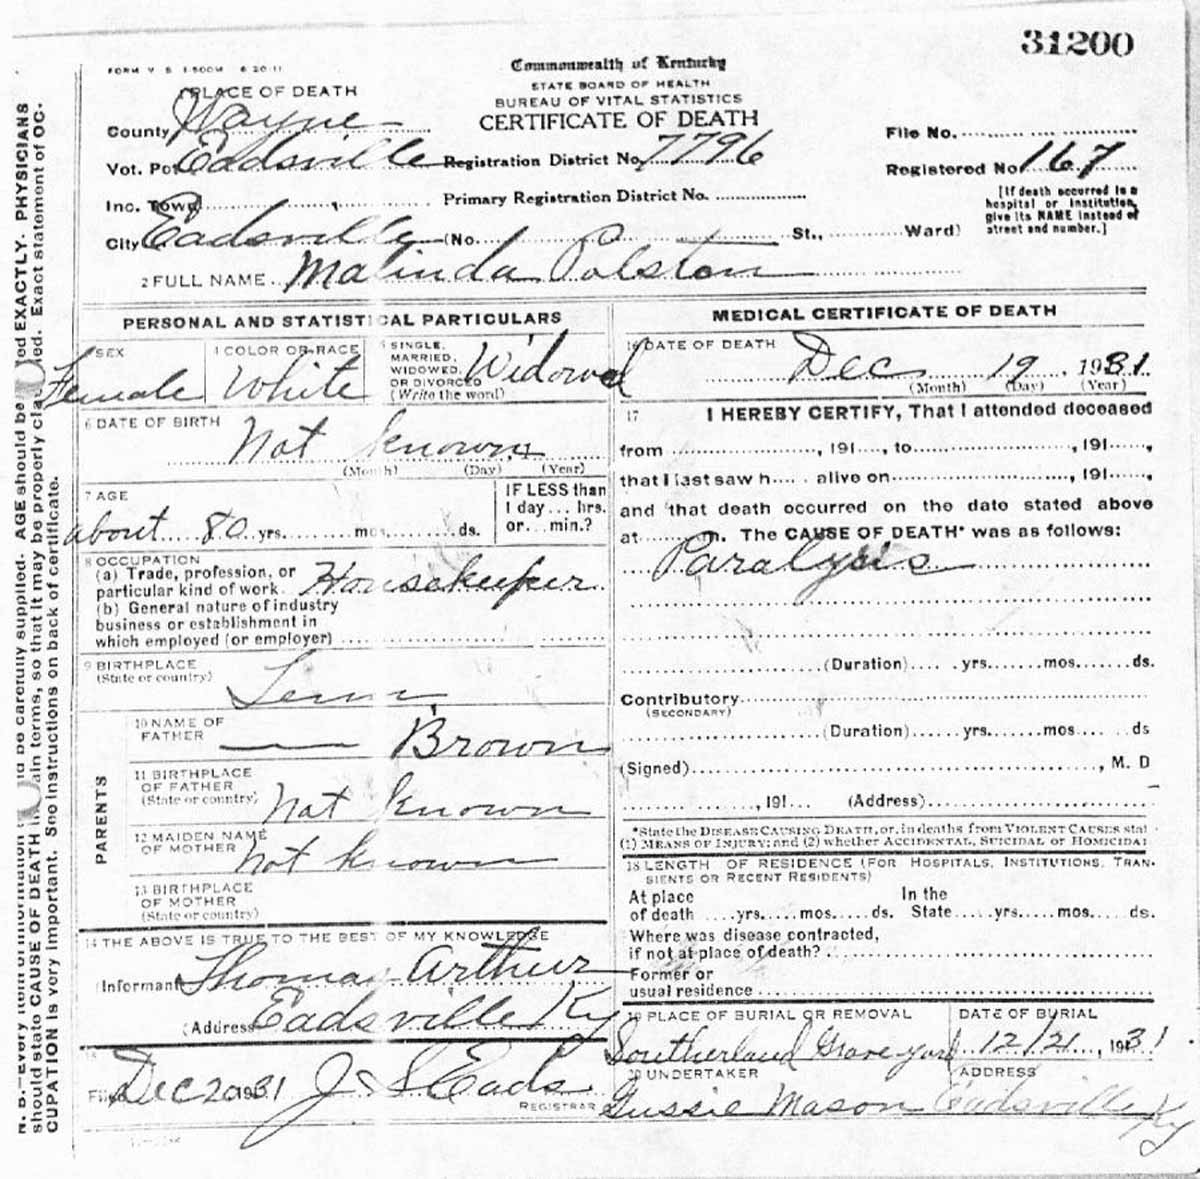 31200
FORM V. S. 1-500M 6-20-11
Commonwealth of Kentucky
STATE BOARD OF HEALTH
BUREAU OF VITAL STATISTICS
CERTIFICATE OF DEATH
PLACE OF DEATH
County Wayne
Vot. Pct Eadsville Registration District No. 7796
File No.
Registered No. 167
Inc. Town
Primary Registration District No.
[If death occurred in a hospital or institution, give its NAME instead of street and number.]
City Eadsville (No. St., Ward)
2 FULL NAME Malinda Polston
PERSONAL AND STATISTICAL PARTICULARS
SEX Female
4 COLOR OR RACE White
5 SINGLE, MARRIED, WIDOWED, OR DIVORCED (Write the word) Widowed
6 DATE OF BIRTH Not known
(Month) (Day) (Year)
7 AGE about 80 yrs. mos. ds.
IF LESS than 1 day... hrs. or... min.?
8 OCCUPATION
(a) Trade, profession, or particular kind of work. Housekeeper
(b) General nature of industry
business or establishment in
which employed (or employer)
9 BIRTHPLACE
(State or country) Tenn
PARENTS
10 NAME OF FATHER Brown
11 BIRTHPLACE OF FATHER (State or country) Not known
12 MAIDEN NAME OF MOTHER not known
13 BIRTHPLACE OF MOTHER (State or country)
14 THE ABOVE IS TRUE TO THE BEST OF MY KNOWLEDGE
(Informant Thomas Arthur
(Address Eadsville Ky
15
Filed Dec 20 1931 J S Eads
REGISTRAR
MEDICAL CERTIFICATE OF DEATH
16 DATE OF DEATH Dec 19, 1931
(Month) (Day) (Year)
17 I HEREBY CERTIFY, That I attended deceased
from , 191 , to , 191 ,
that I last saw h alive on , 191 ,
and that death occurred on the date stated above
at m. The CAUSE OF DEATH* was as follows:
Paralysis
(Duration) yrs. mos. ds.
Contributory
(SECONDARY)
(Duration) yrs. mos. ds
(Signed) , M. D
, 191 (Address)
*State the DISEASE CAUSING DEATH, or, in deaths from VIOLENT CAUSES stat
(1) MEANS OF INJURY; and (2) whether ACCIDENTAL, SUICIDAL or HOMICIDAL
18 LENGTH OF RESIDENCE (FOR HOSPITALS, INSTITUTIONS, TRANSIENTS OR RECENT RESIDENTS)
At place of death yrs. mos. ds. In the State yrs. mos. ds.
Where was disease contracted,
if not at place of death?
Former or
usual residence
19 PLACE OF BURIAL OR REMOVAL Southerland Graveyard
DATE OF BURIAL 12/21, 1931
20 UNDERTAKER Gussie Mason
ADDRESS Eadsville Ky
N. B.—Every item of information should be carefully supplied. AGE should be stated EXACTLY. PHYSICIANS
should state CAUSE OF DEATH in plain terms, so that it may be properly classified. Exact statement of OC-
CUPATION is very important. See instructions on back of certificate.